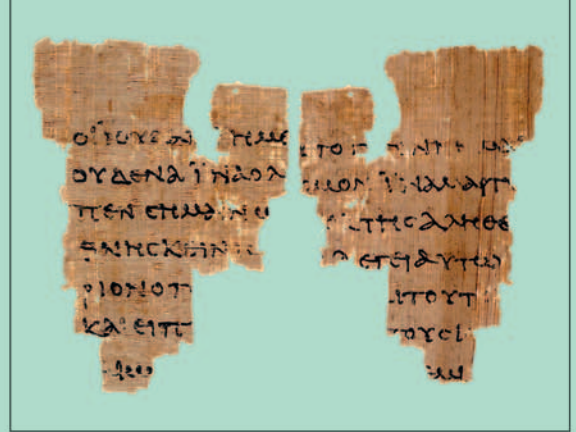 ΟΙΪΟΥΔΑΙ ΗΜΕ
ΟΥΔΕΝΑΪΝΑΟΛ
ΠΕΝϹΗΜΑΙΝΩ
ΘΝΗϹΚΕΙΝ
ΡΙΟΝΟΠ
ΚΑΙΕΙΠ
ΤΟΓ ΝΝΗΜΑΙ
ϹΜΟΝΪΝΑΜΑΡΤ
ΤΗϹΑΛΗΘΕ
ΛΕΓΕΙΑΥΤΩ
ΑΙΤΟΥΤ
ΤΟΥϹΙ